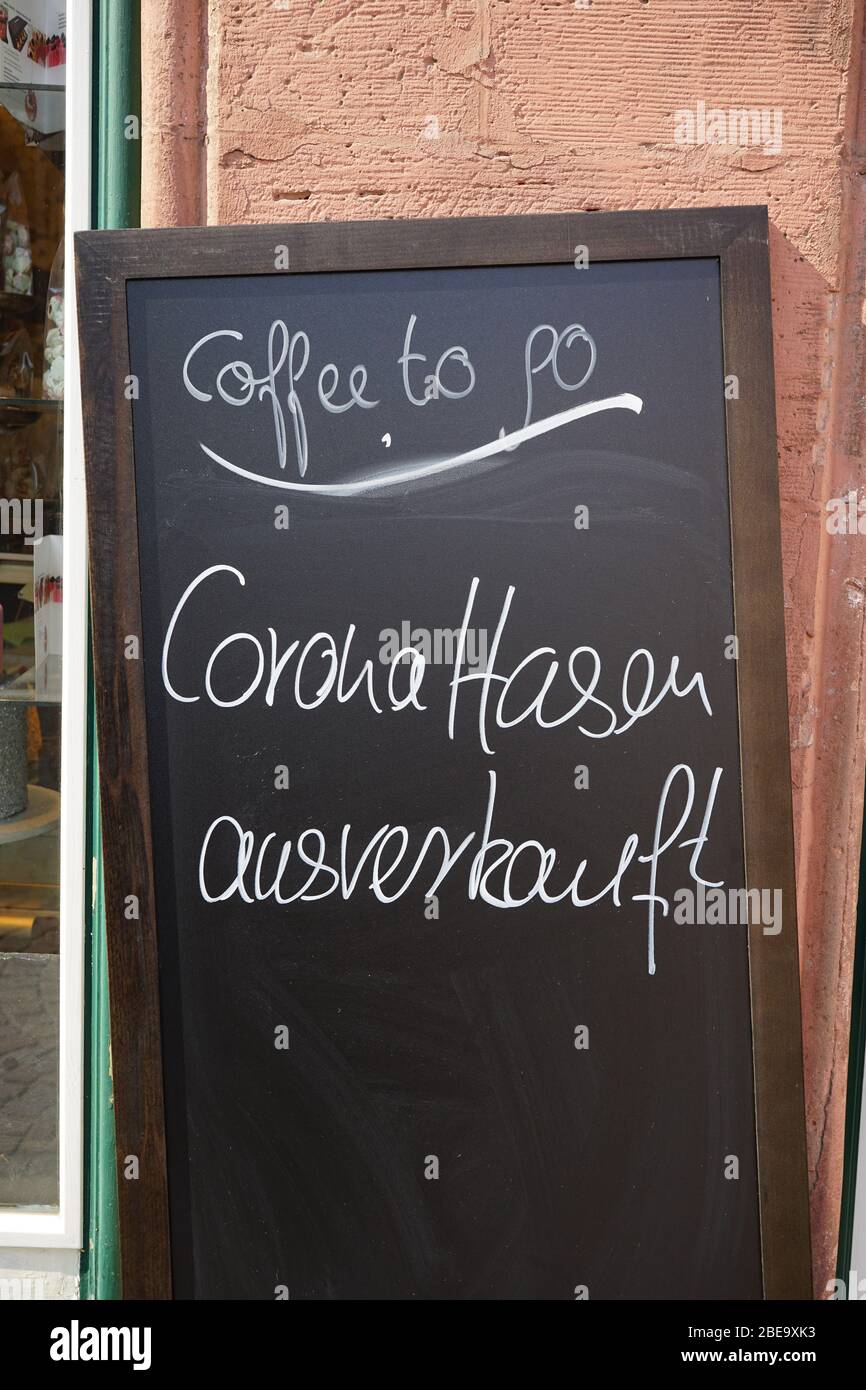 Coffee to go
Corona Hasen
ausverkauft
alamy
Image ID: 2BE9XK3
www.alamy.com